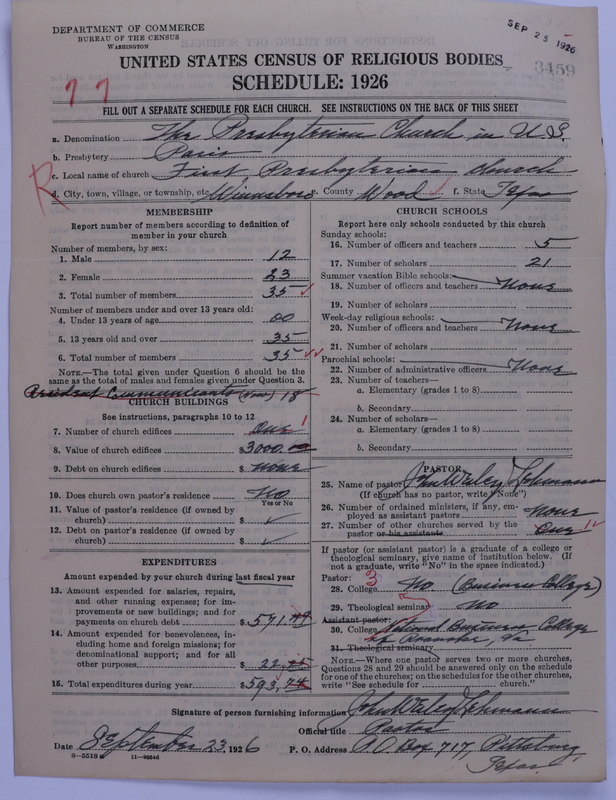 DEPARTMENT OF COMMERCE
BUREAU OF THE CENSUS
WASHINGTON
SEP 25 1926
3459
UNITED STATES CENSUS OF RELIGIOUS BODIES
SCHEDULE: 1926
77
FILL OUT A SEPARATE SCHEDULE FOR EACH CHURCH. SEE INSTRUCTIONS ON THE BACK OF THIS SHEET
a. Denomination The Presbyterian Church in U.S.
b. Presbytery Paris
c. Local name of church First Presbyterian church
R
d. City, town, village, or township, etc. Winnsboro e. County Wood f. State Texas
MEMBERSHIP
Report number of members according to definition of
member in your church
Number of members, by sex:
1. Male 12
2. Female 23
3. Total number of members 35
Number of members under and over 13 years old:
4. Under 13 years of age 00
5. 13 years old and over 35
6. Total number of members 35
NOTE.—The total given under Question 6 should be
same as the total of males and females given under Question 3.
Resident Communicants (now) 18
CHURCH BUILDINGS
See instructions, paragraphs 10 to 12
7. Number of church edifices One 1
8. Value of church edifices $3000.00
9. Debt on church edifices $ none
10. Does church own pastor's residence No
Yes or No
11. Value of pastor's residence (if owned by
church) $ ✓
12. Debt on pastor's residence (if owned by
church) $ ✓
EXPENDITURES
Amount expended by your church during last fiscal year
13. Amount expended for salaries, repairs,
and other running expenses; for im-
provements or new buildings; and for
payments on church debt $ 571.
14. Amount expended for benevolences, in-
cluding home and foreign missions; for
denominational support; and for all
other purposes 22.
15. Total expenditures during year $ 593.
CHURCH SCHOOLS
Report here only schools conducted by this church
Sunday schools:
16. Number of officers and teachers 5
17. Number of scholars 21
Summer vacation Bible schools:
18. Number of officers and teachers None
19. Number of scholars
Week-day religious schools:
20. Number of officers and teachers None
21. Number of scholars
Parochial schools:
22. Number of administrative officers None
23. Number of teachers—
a. Elementary (grades 1 to 8)
b. Secondary
24. Number of scholars—
a. Elementary (grades 1 to 8)
b. Secondary
PASTOR
25. Name of pastor John Wesley Lehmann
(If church has no pastor, write "None")
26. Number of ordained ministers, if any, em-
ployed as assistant pastors None
27. Number of other churches served by the
pastor or his assistants One 1
If pastor (or assistant pastor) is a graduate of a college or
theological seminary, give name of institution below. (If
not a graduate, write "No" in the space indicated.)
Pastor: 3
28. College No (Business College)
29. Theological seminary No
Assistant pastor:
30. College National Business College
of Roanoke, Va
31. Theological seminary
NOTE.—Where one pastor serves two or more churches,
Questions 28 and 29 should be answered only on the schedule
for one of the churches; on the schedules for the other churches,
write "See schedule for church."
Signature of person furnishing information John Wesley Lehmann
Official title Pastor
Date September 23, 1926 P. O. Address P.O. Box 717, Pittsburg,
Texas.
8—5518 11—9064d